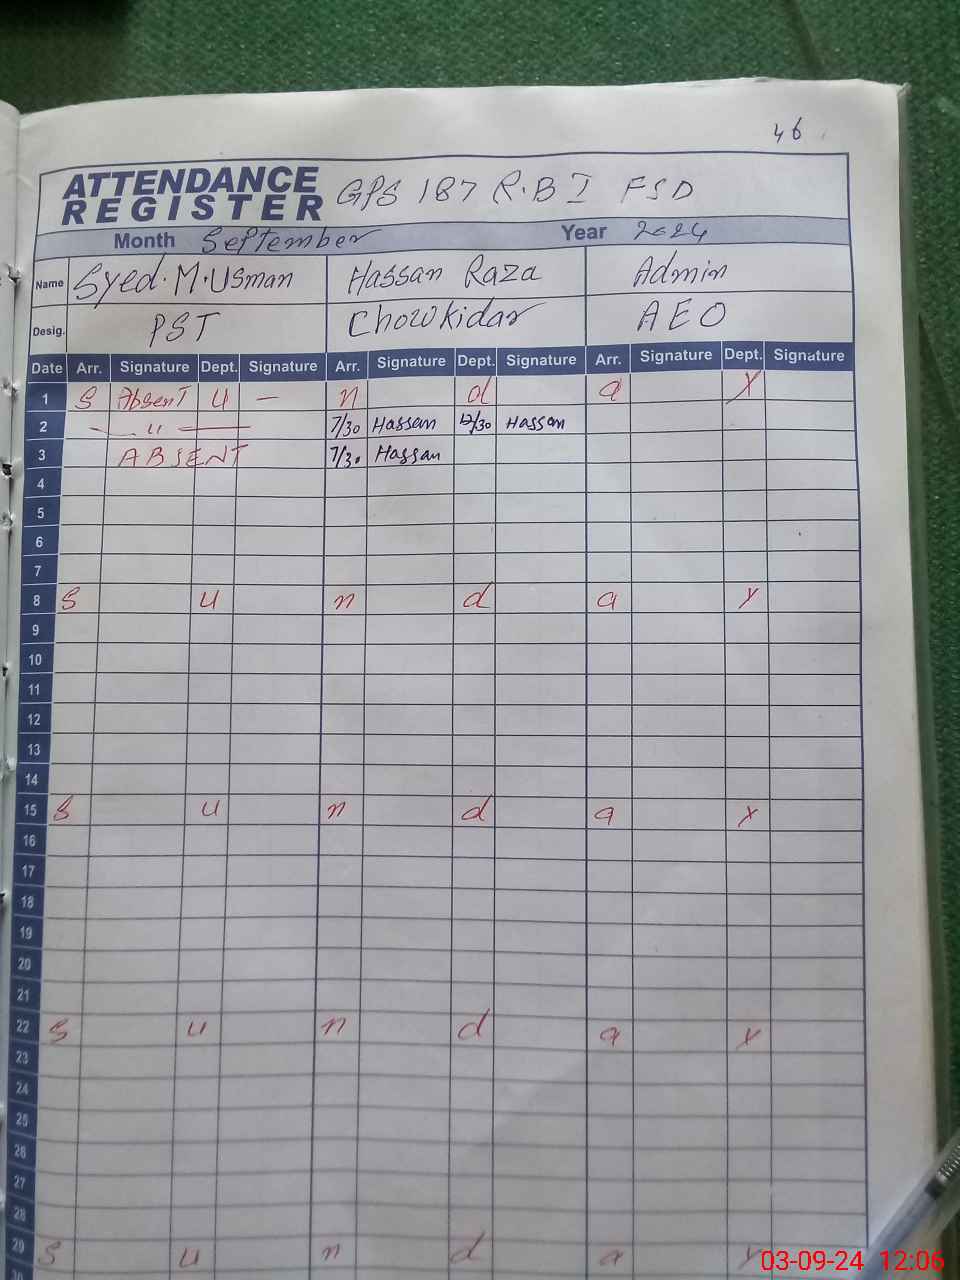 46
ATTENDANCE REGISTER GPS 187 R.B I FSD
Month September Year 2024
Name Syed.M.Usman Hassan Raza Admin
Desig. PST Chowkidar AEO
Date Arr. Signature Dept. Signature Arr. Signature Dept. Signature Arr. Signature Dept. Signature
1 S Absent u — n d a y
2 — u — 7/30 Hassan 12/30 Hassan
3 ABSENT 7/30 Hassan
4
5
6
7
8 S u n d a y
9
10
11
12
13
14
15 S u n d a y
16
17
18
19
20
21
22 S u n d a y
23
24
25
26
27
28
29 S u n d a y
30
03-09-24 12:06